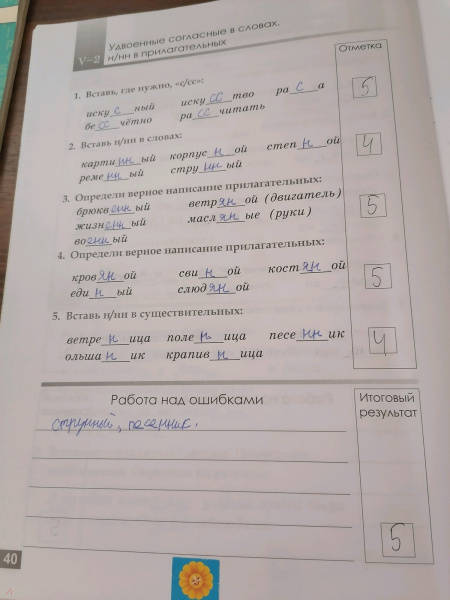 V–2
Удвоенные согласные в словах.
н/нн в прилагательных
Отметка
1. Вставь, где нужно, «с/сс»:
иску с ный иску сс тво ра с а
бе сс чётно ра сс читать
5
2. Вставь н/нн в словах:
карти нн ый корпус н ой степ н ой
реме нн ый стру нн ый
4
3. Определи верное написание прилагательных:
брюкв енн ый ветр ян ой (двигатель)
жизн енн ый масл ян ые (руки)
во енн ый
5
4. Определи верное написание прилагательных:
кров ян ой сви н ой кост ян ой
еди н ый слюд ян ой
5
5. Вставь н/нн в существительных:
ветре н ица поле н ица песе нн ик
ольша н ик крапив н ица
4
Работа над ошибками
Итоговый
результат
струнный, песенник.
5
40